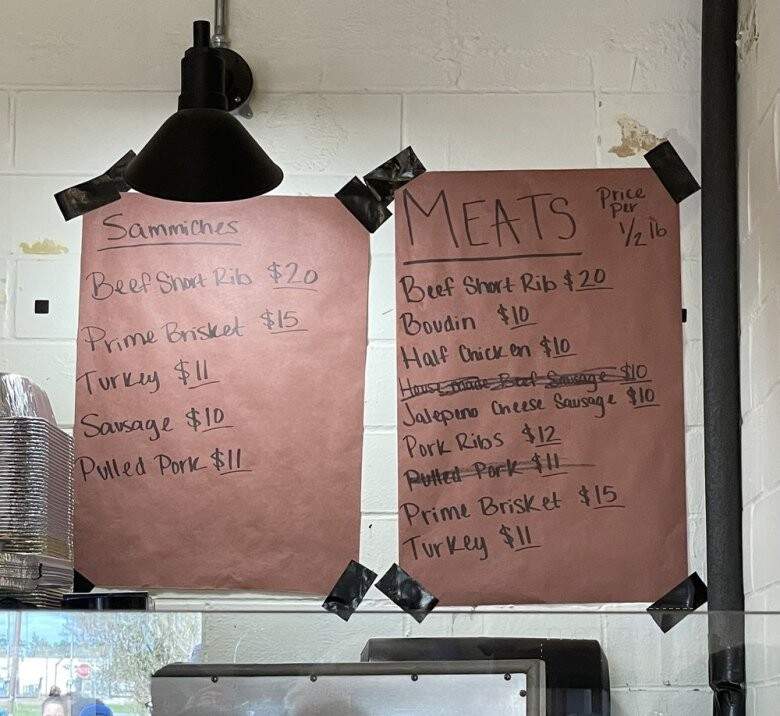 Sammiches
Beef Short Rib $20
Prime Brisket $15
Turkey $11
Sausage $10
Pulled Pork $11
MEATS
Price
Per
1/2 lb
Beef Short Rib $20
Boudin $10
Half Chicken $10
House made Beef Sausage $10
Jalepeno Cheese Sausage $10
Pork Ribs $12
Pulled Pork $11
Prime Brisket $15
Turkey $11